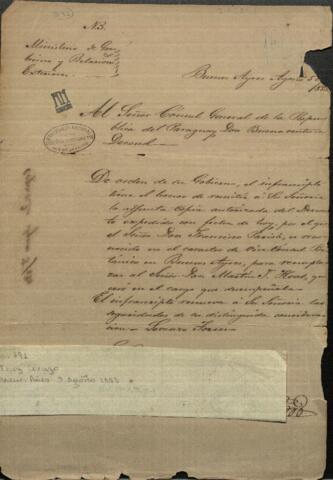 N3.
Ministerio de Go-
bierno y Relacion
Exterior
Buenos Ayres Agosto 5
Al Señor Cónsul General de la Repú-
blica del Paraguay Don Buenaventura
Decoud.
De orden de su Gobierno, el infrascripto
tiene el honor de remitir á Su Señoría
la adjunta copia autorizada del Decre-
to expedido con fecha de hoy, por el que
el Señor Don Francisco Parish, es reco-
nocido en el caracter de Vice Cónsul Bri-
tánico en Buenos Ayres, para reempla-
zar al Señor Don Martin T. Hood, que
cesó en el cargo que desempeñaba.
El infrascripto renueva á Su Señoría las
seguridades de su distinguida considera-
cion - Lorenzo Torres
Buenos Aires 5 agosto 1853